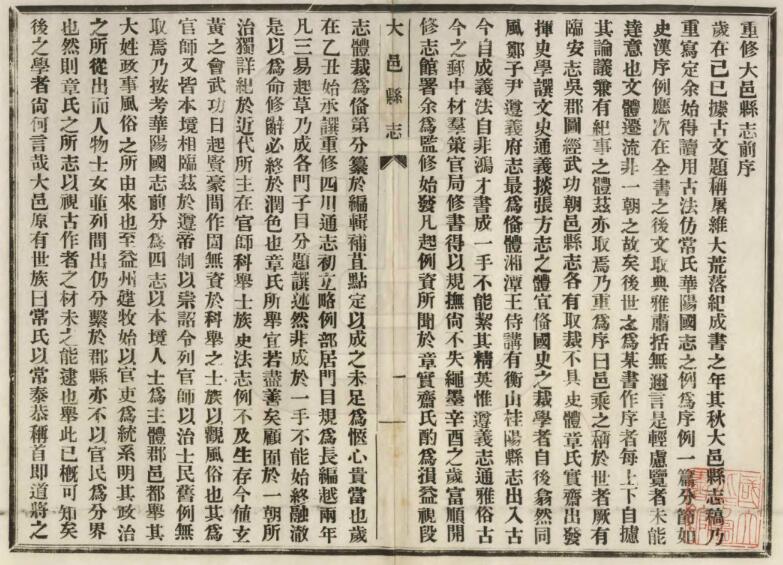 重修大邑縣志前序
歲在己巳據古文題稱屠維大荒落紀成書之年其秋大邑縣志稿乃
重寫定余始得讀用古法仿常氏華陽國志之例爲序例一篇分節如
史漢序例應次在全書之後文取典雅肅括無邇言是輕慮覽者未能
達意也文體遷流非一朝之故矣後世之爲某書作序者每上下自據
其論議兼有紀事之體茲亦取焉乃重爲序曰邑乘之稱於世者厥有
臨安志吳郡圖經武功朝邑縣志各有取裁不具史體章氏實齋出發
揮史學譔文史通義掞張方志之體宜僃國史之裁學者自後翕然同
風鄭子尹遵義府志最爲僃體湘潭王侍講有衡山桂陽縣志出入古
今自成義法自非鴻才書成一手不能絜其精英惟遵義志通雅俗古
今之郵中材羣策官局修書得以規撫尙不失繩墨辛酉之歲富順開
修志館署余爲監修始發凡起例資所聞於章實齋氏酌爲損益視段
大邑縣志
一
志體裁爲僃第分纂於編輯補苴點定以成之未足爲愜心貴當也歲
在乙丑始承譔重修四川通志初立略例部居門目規爲長編越兩年
凡三易起草乃成各門子目分題譔述然非成於一手不能始終融澈
是以爲命修辭必終於潤色也章氏所舉宜若盡善矣顧囿於一朝所
治獨詳紀於近代所主在官師科舉士族史法志例不及生存今値玄
黃之會武功日起賢豪間作固無資於科舉之士族以觀風俗也其爲
官師又皆本境相臨茲於遵帝制以崇詔令列官師以治士民舊例無
取焉乃按考華陽國志前分爲四志以本境人士爲主體郡邑都舉其
大姓政事風俗之所由來也至益州建牧始以官吏爲統系明其政治
之所從出而人物士女並列間出仍分繫於郡縣亦不以官民爲分界
也然則章氏之所志以視古作者之材未之能逮也舉此已概可知矣
後之學者尙何言哉大邑原有世族曰常氏以常泰恭稱首卽道將之